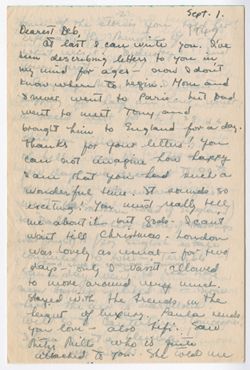 Sept. 1.
Dearest Deb,
At last I can write you. I've
been describing letters to you in
my mind for ages - now I don't
know where to begin. Mom and
I never went to Paris. But Dad
went to meet Tony and
brought him to England for a day.
Thanks for your letters! You
can not imagine how happy
I am that you had such a
wonderful time. It sounds so
exciting! You must really tell
me about it. I can't
wait till Christmas. London
was lovely as usual for two
days - only I wasn't allowed
to move around very much.
Stayed with the in the
height of luxury. Paula sends
you love - also Fifi. Saw
who is quite
attached to you. She told me